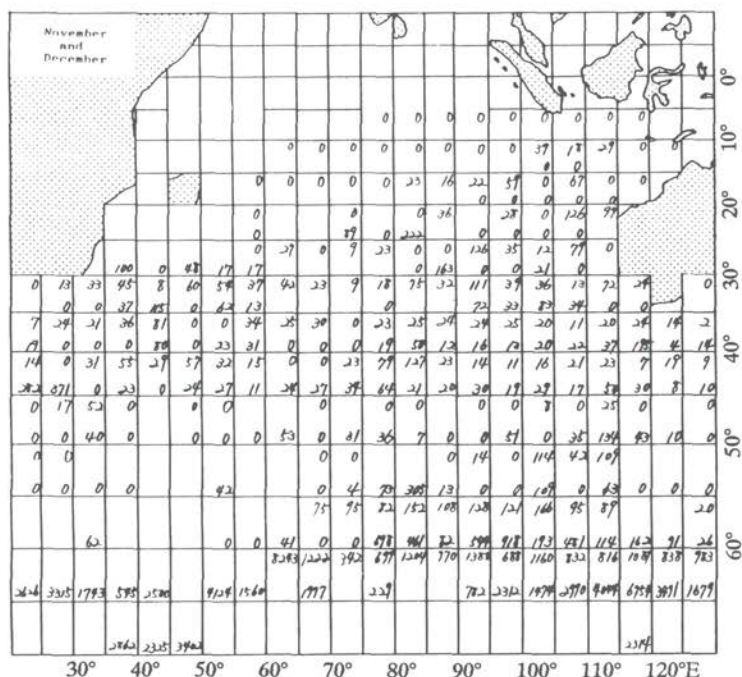 November
and
December
0°
0 0 0 0 0 0 0 0 0
10°
0 0 0 0 0 0 0 0 39 18 29 0
0 0
0 0 0 0 23 16 22 59 0 67 0
0 0 0 0 0
20°
0 0 0 36 28 0 126 99
89 0 222
0 29 0 9 23 0 0 126 35 12 79 0
100 0 48 17 17 0 163 0 0 21 0
30°
0 13 33 45 8 60 54 37 42 23 9 18 75 32 111 39 36 13 72 24 0
0 0 37 0 62 13 0 72 33 83 34 0 0
7 24 21 36 81 0 0 34 25 30 0 23 25 24 24 25 20 11 20 24 14 2
19 0 0 0 80 0 23 31 0 0 0 19 50 12 16 12 20 22 37 4 14
40°
14 0 31 55 29 57 32 15 0 0 23 79 127 23 14 11 16 21 23 7 19 9
282 871 0 23 0 24 27 11 24 27 39 64 21 20 30 19 29 17 50 30 8 10
0 17 52 0 0 0 0 0 0 0 0 0 8 0 25 0 0
0 0 40 0 0 0 0 53 0 31 36 7 0 0 51 0 35 134 43 10 0
50°
0 0 0 0 0 14 0 114 42 109
0 0 0 0 42 0 4 73 305 13 0 0 109 0 63 0 0 0
75 95 82 152 108 128 121 166 95 89 20
62 0 0 41 0 0 698 461 82 544 918 193 481 114 162 91 26
60°
8243 1222 342 697 1204 770 1388 688 1160 832 816 1039 838 983
2626 3315 1743 595 2500 4124 1560 1997 229 782 2312 1474 2990 4044 6754 3491 1679
2862 2325 3402 2314
30° 40° 50° 60° 70° 80° 90° 100° 110° 120°E